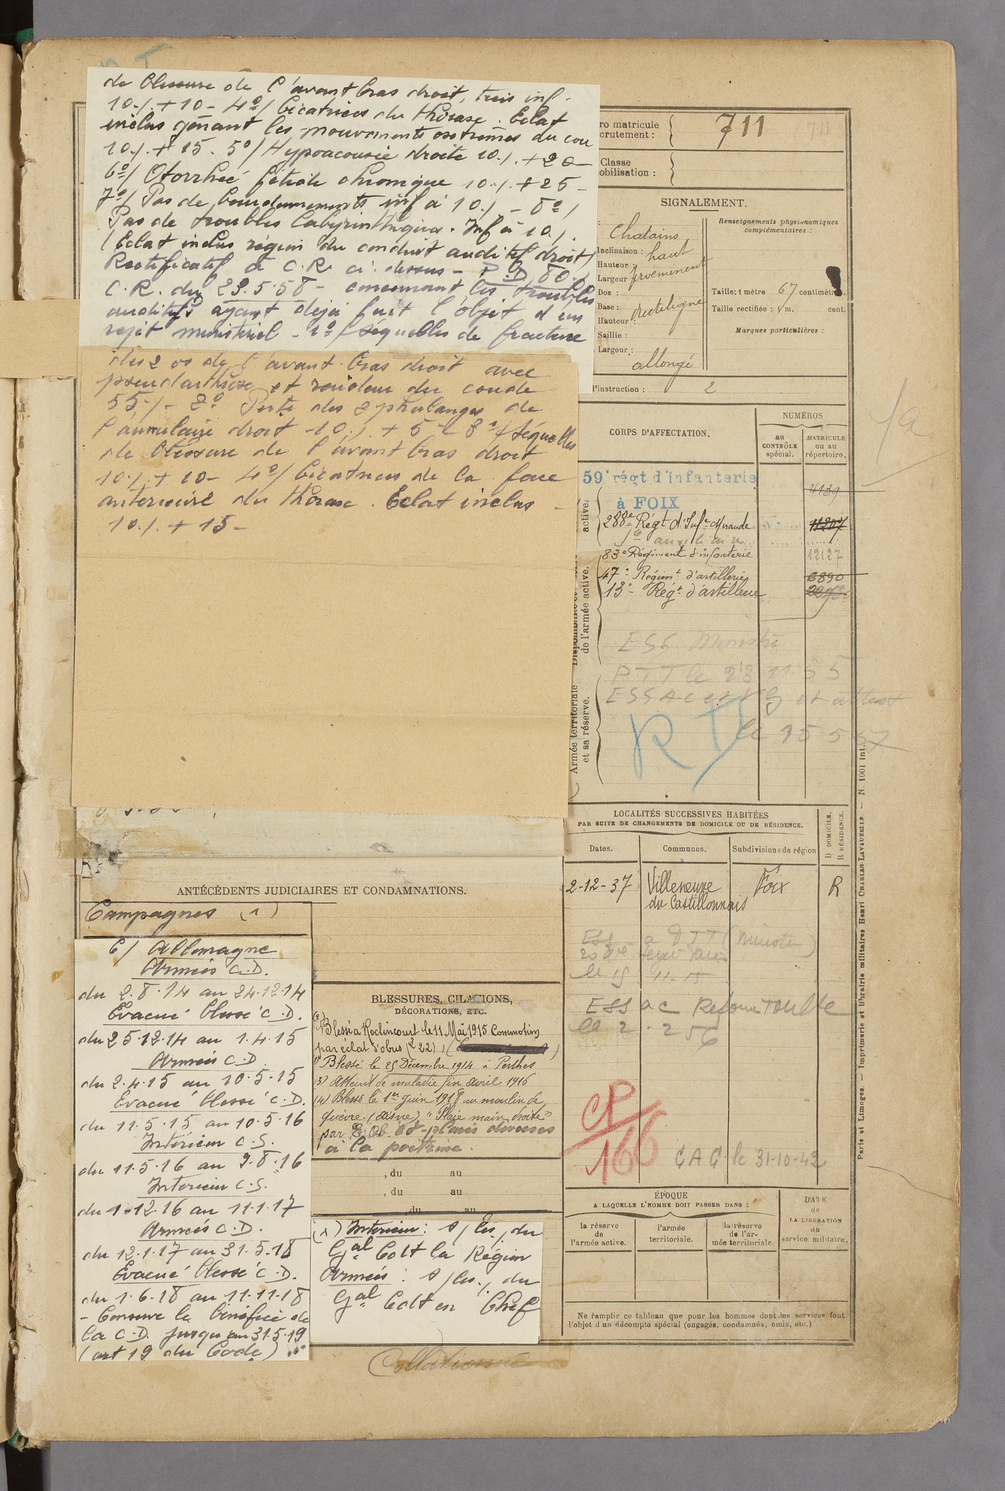 de blessure de l'avant bras droit, très inf.
10% + 10 - 4°/ Cicatrices du thorax. Eclat
inclus gênant les mouvements extrêmes du cou
10% + 15. 5°/ Hypoacousie droite 10% + 20 -
6°/ Otorrhée fétide chronique 10% + 25 -
7°/ Pas de bourdonnements inf à 10% - 8°/
Pas de troubles labyrinthiques. Inf à 10%
(Eclat inclus région du conduit auditif droit)
Rectificatif à C.R. ci-dessus - P.D. 80%
C.R. du 29.5.58 - concernant les troubles
auditifs ayant déjà fait l'objet d'un
rejet ministériel - 1°/ Séquelles de fracture
des 2 os de l'avant-bras droit avec
pseudarthrose et raideur du coude
55% - 2° Perte des 2 phalanges de
l'annulaire droit - 10% + 5 - 3°/ Séquelles
de blessure de l'avant bras droit
10% + 10 - 4°/ Cicatrices de la face
antérieure du thorax. Eclat inclus -
10% + 15 -
ro matricule
crutement :
711
Classe
obilisation :
SIGNALEMENT.
Chatains
Inclinaison : haut
Hauteur
Largeur proéminent
Dos :
Base : rectiligne
Hauteur :
Saillie :
Largeur :
allongé
Renseignements physionomiques
complémentaires :
Taille : 1 mètre 67 centimètres
Taille rectifiée : 1 m. cent.
Marques particulières :
l'instruction : 2
CORPS D'AFFECTATION.
NUMÉROS
AU
CONTRÔLE
spécial.
MATRICULE
ou au
répertoire.
59e régt d'infanterie
à FOIX
4139
288e Régt d'Infie Mirande
11207
Sce auxiliaire
83e Régiment d'infanterie 12127
47e Régimt d'artillerie 6890
13e Régt d'artillerie
de l'armée active.
Armée territoriale
et sa réserve.
ESS
PTT le 23 11 55
R
LOCALITÉS SUCCESSIVES HABITÉES
PAR SUITE DE CHANGEMENTS DE DOMICILE OU DE RÉSIDENCE.
Dates.
Communes.
Subdivisions de région
D DOMICILE.
R RÉSIDENCE.
2-12-37 Villeneuve Foix R
du Castillonnais
ESS ac Reforme Toulouse
le 2.2 56
CP
166
CAC le 31-10-42
ÉPOQUE
A LAQUELLE L'HOMME DOIT PASSER DANS :
la réserve
de l'armée active.
l'armée
territoriale.
la réserve
de l'ar-
mée territoriale.
DATE
de
LA LIBÉRATION
du
service militaire.
Ne remplir ce tableau que pour les hommes dont les services font
l'objet d'un décompte spécial (engagés, condamnés, omis, etc.)
Paris et Limoges. — Imprimerie et librairie militaires Henri CHARLES-LAVAUZELLE — N. 1001 int.
ANTÉCÉDENTS JUDICIAIRES ET CONDAMNATIONS.
Campagnes (1)
C/ Allemagne
Armées C.D.
du 2.8.14 au 24.12.14
Evacué blessé C.D.
du 25.12.14 au 1.4.15
Armées C.D
du 2.4.15 au 10.5.15
Evacué blessé C.D.
du 11.5.15 au 10.5.16
Intérieur C.S.
du 11.5.16 au 9.8.16
Intérieur C.S.
du 1.12.16 au 11.1.17
Armées C.D.
du 12.1.17 au 31.5.18
Evacué blessé C.D.
du 1.6.18 au 11.11.18
- Conserve le bénéfice de
la C.D. jusqu'au 31.5.19
(art 19 du Code)
BLESSURES, CITATIONS,
DÉCORATIONS, ETC.
Blessé à Roclincourt le 11 Mai 1915 Commotion
par éclat d'obus
Blessé le 25 Décembre 1914 à Perthes
(3) Atteint de maladie fin avril 1916
(4) Blessé le 1er juin 1918 au moulin de
(Aisne) "Plaie main droite"
par E. Ob. et plaies diverses
à la poitrine.
, du au
, du au
, du au
(1) Intérieur : s/ les o/ du
Gal Cdt la Région
Armées : s/ les o/ du
Gal Cdt en Chef
Collationné